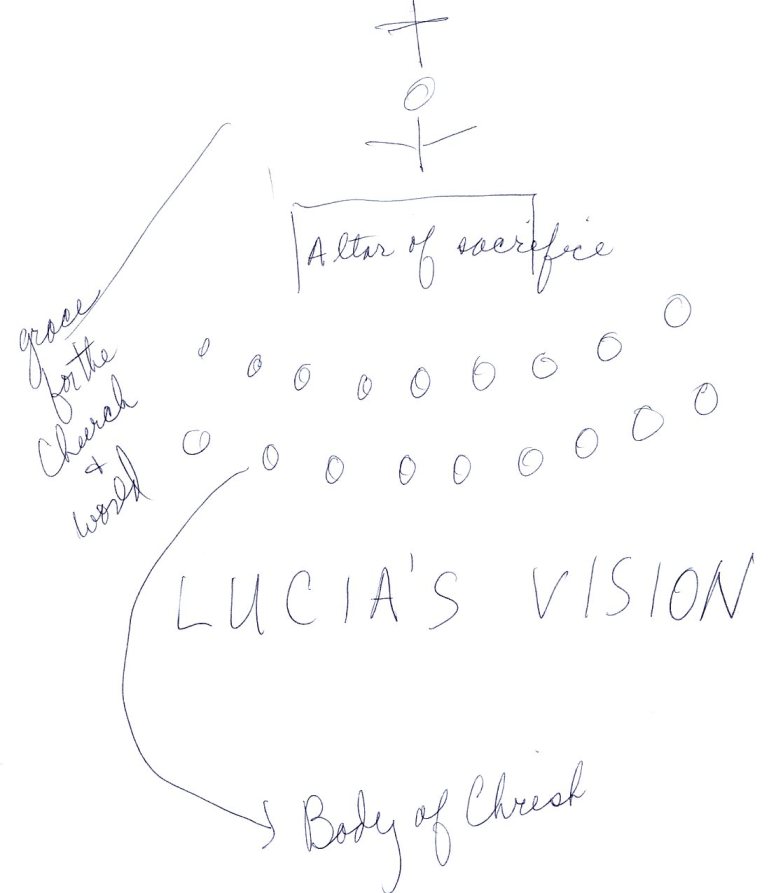 Altar of sacrifice
grace
for the
Church
+
world
LUCIA'S VISION
Body of Christ